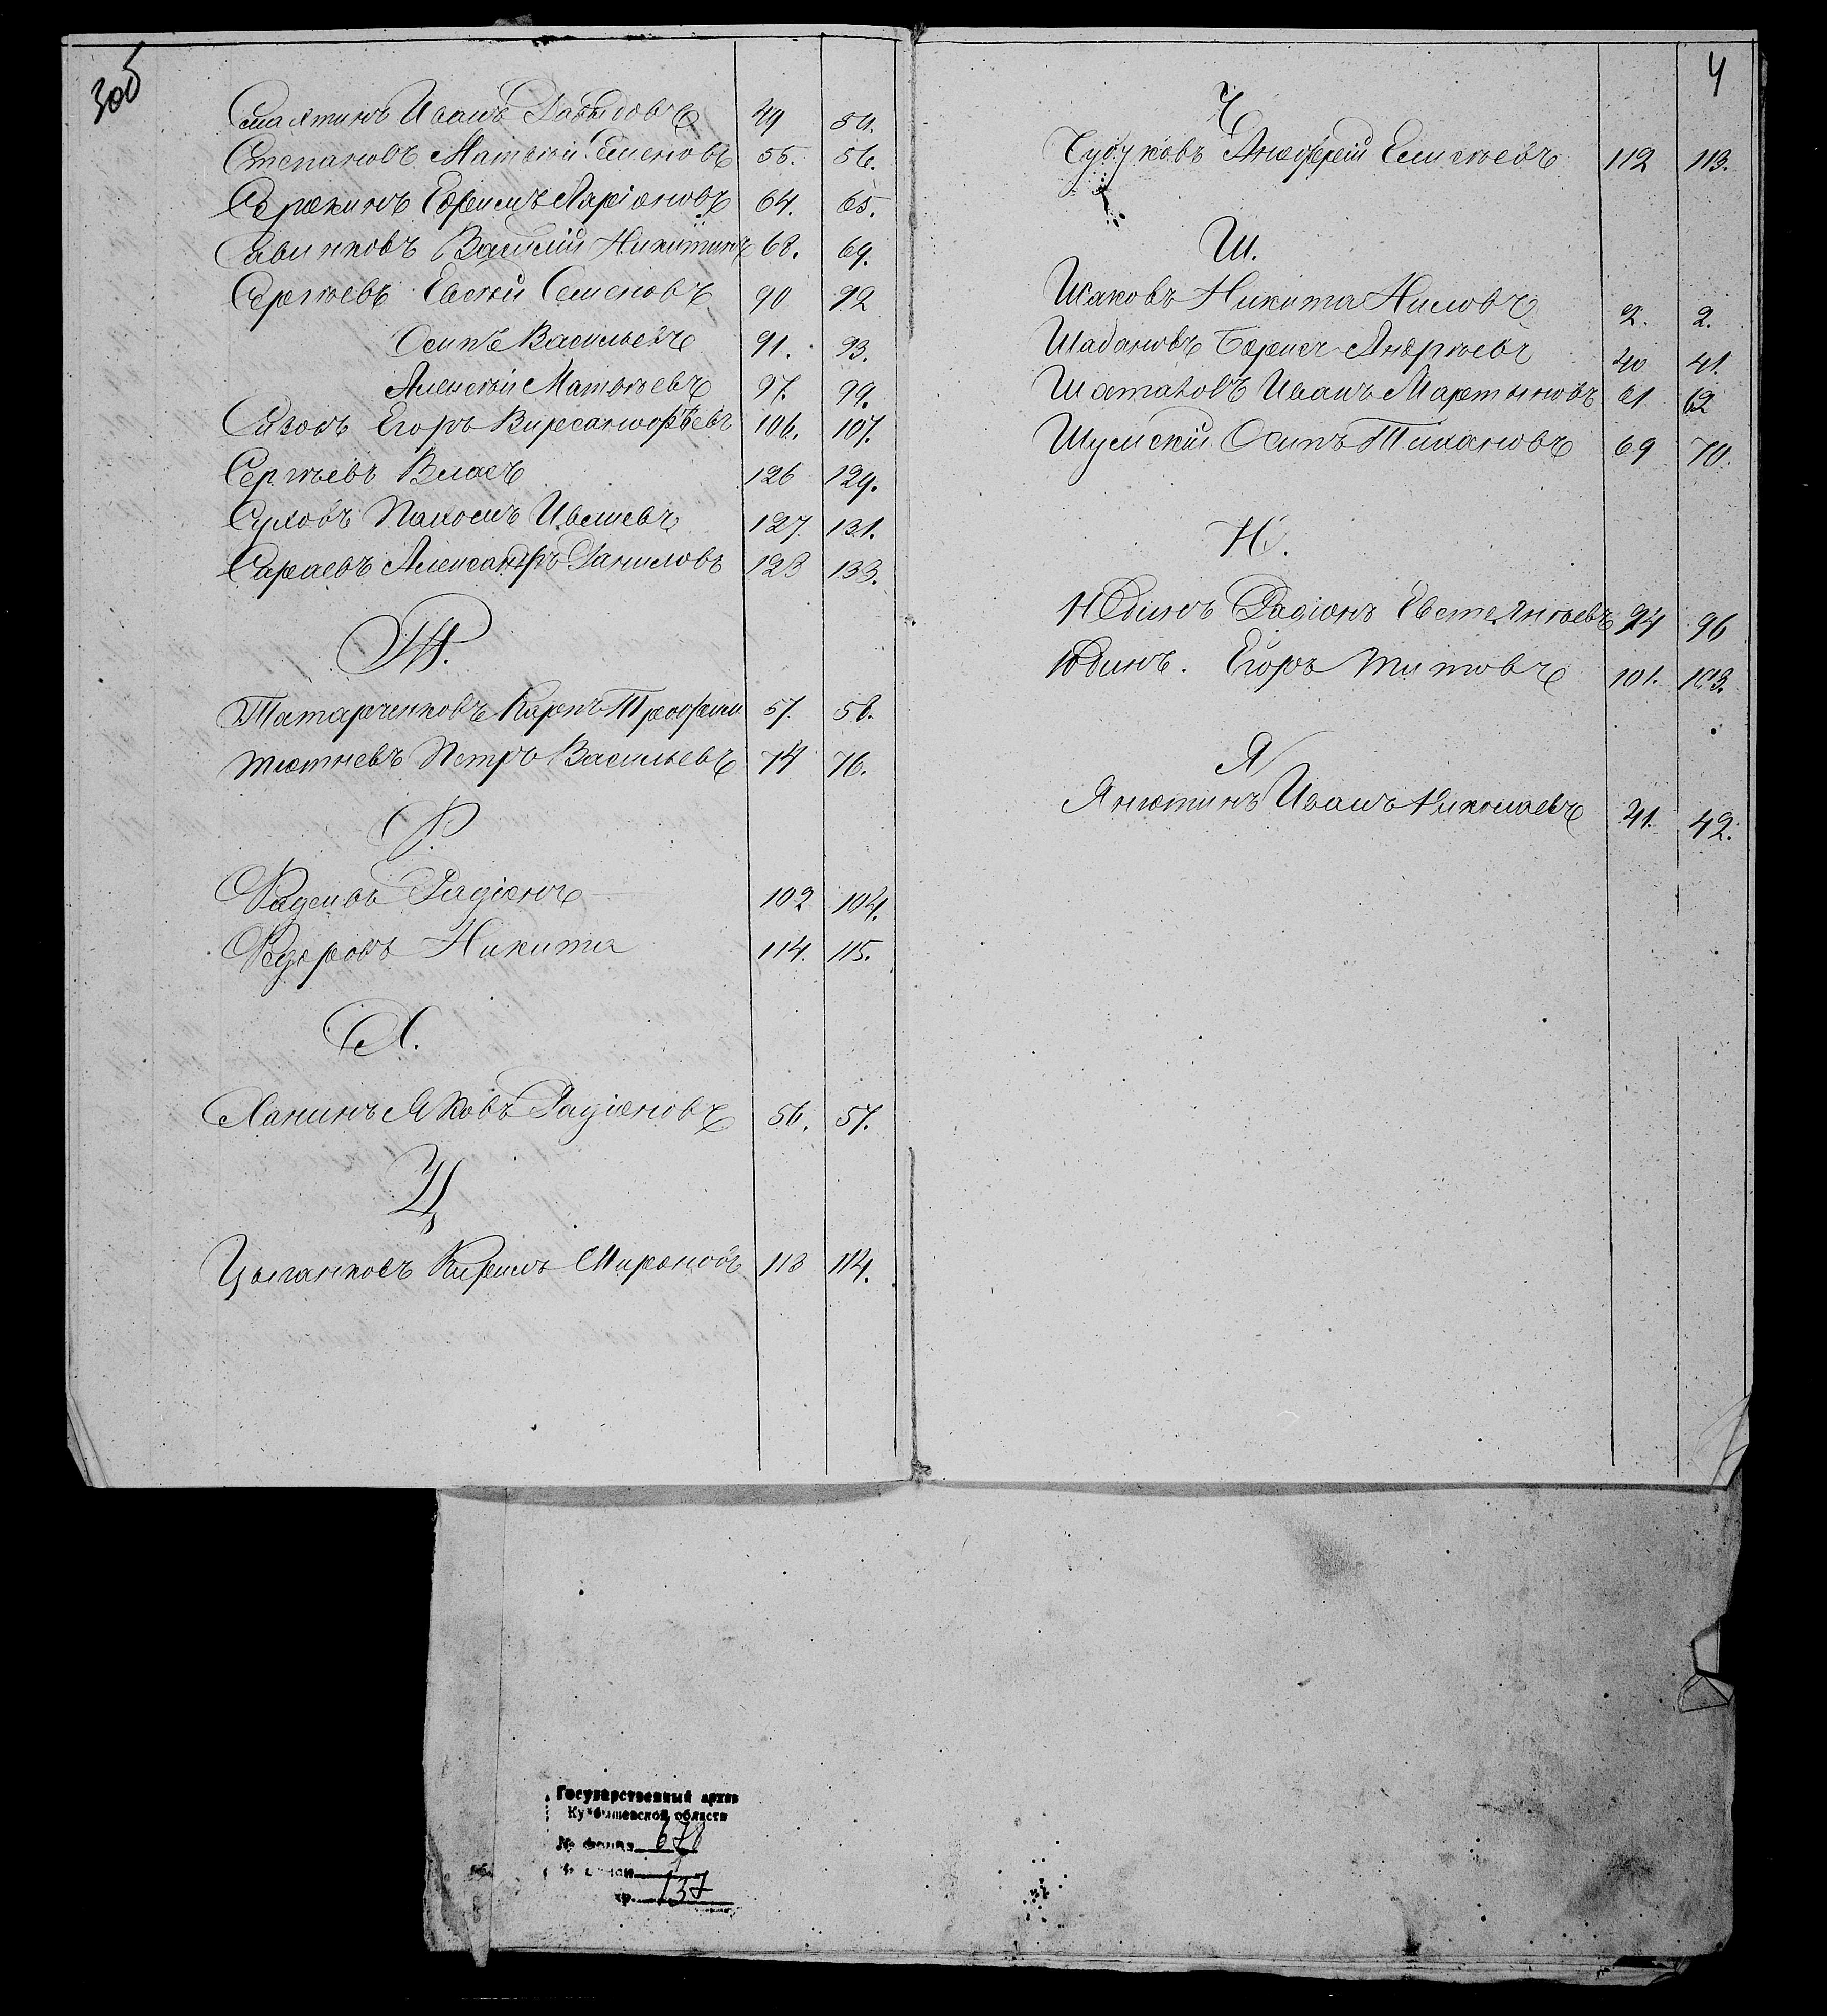 3об
Смалтинъ Иванъ Давыдовъ 49 50.
Степановъ Матвѣй Семеновъ 55. 56.
Сорокинъ Ефремъ Ларіоновъ 64. 65.
Савинковъ Василій Никитинъ 68. 69.
Сергѣевъ Евсѣй Семеновъ 90 92
Осипъ Васильевъ 91. 93.
Алексѣй Матвѣевъ 97. 99.
Сизовъ Егоръ 106. 107.
Сергѣевъ Власъ 126 129.
Суховъ Пахомъ 127. 131.
Сараевъ Александръ Даниловъ 123 133.
Т.
Татарченковъ Карпъ Трофим 57. 58.
Тютневъ Петръ Васильевъ 74 76.
Ѳ.
Ѳадеевъ Радіонъ 102 104.
Ѳедоровъ Никита 114. 115.
Х.
Ханинъ Яковъ Радіоновъ 56. 57.
Ц
Цыганковъ Кирилъ Мироновъ 113 114.
4
Ч
Чубуковъ Анофрей Елисѣевъ 112 113.
Ш.
Шаховъ Никита Ниловъ 2. 2.
Шабановъ Борисъ Андреевъ 40 41.
Шаталовъ Иванъ Мартыновъ 61 62
Шумскій Осипъ Тихановъ 69 70.
Ю.
Юдинъ Радіонъ 94 96
Юдинъ. Егоръ Титовъ 101. 103.
Я
Янютинъ Иванъ Николаевъ 41. 42.
Государственный архив
Куйбышевской области
№ фонда 678
1
хр. 137